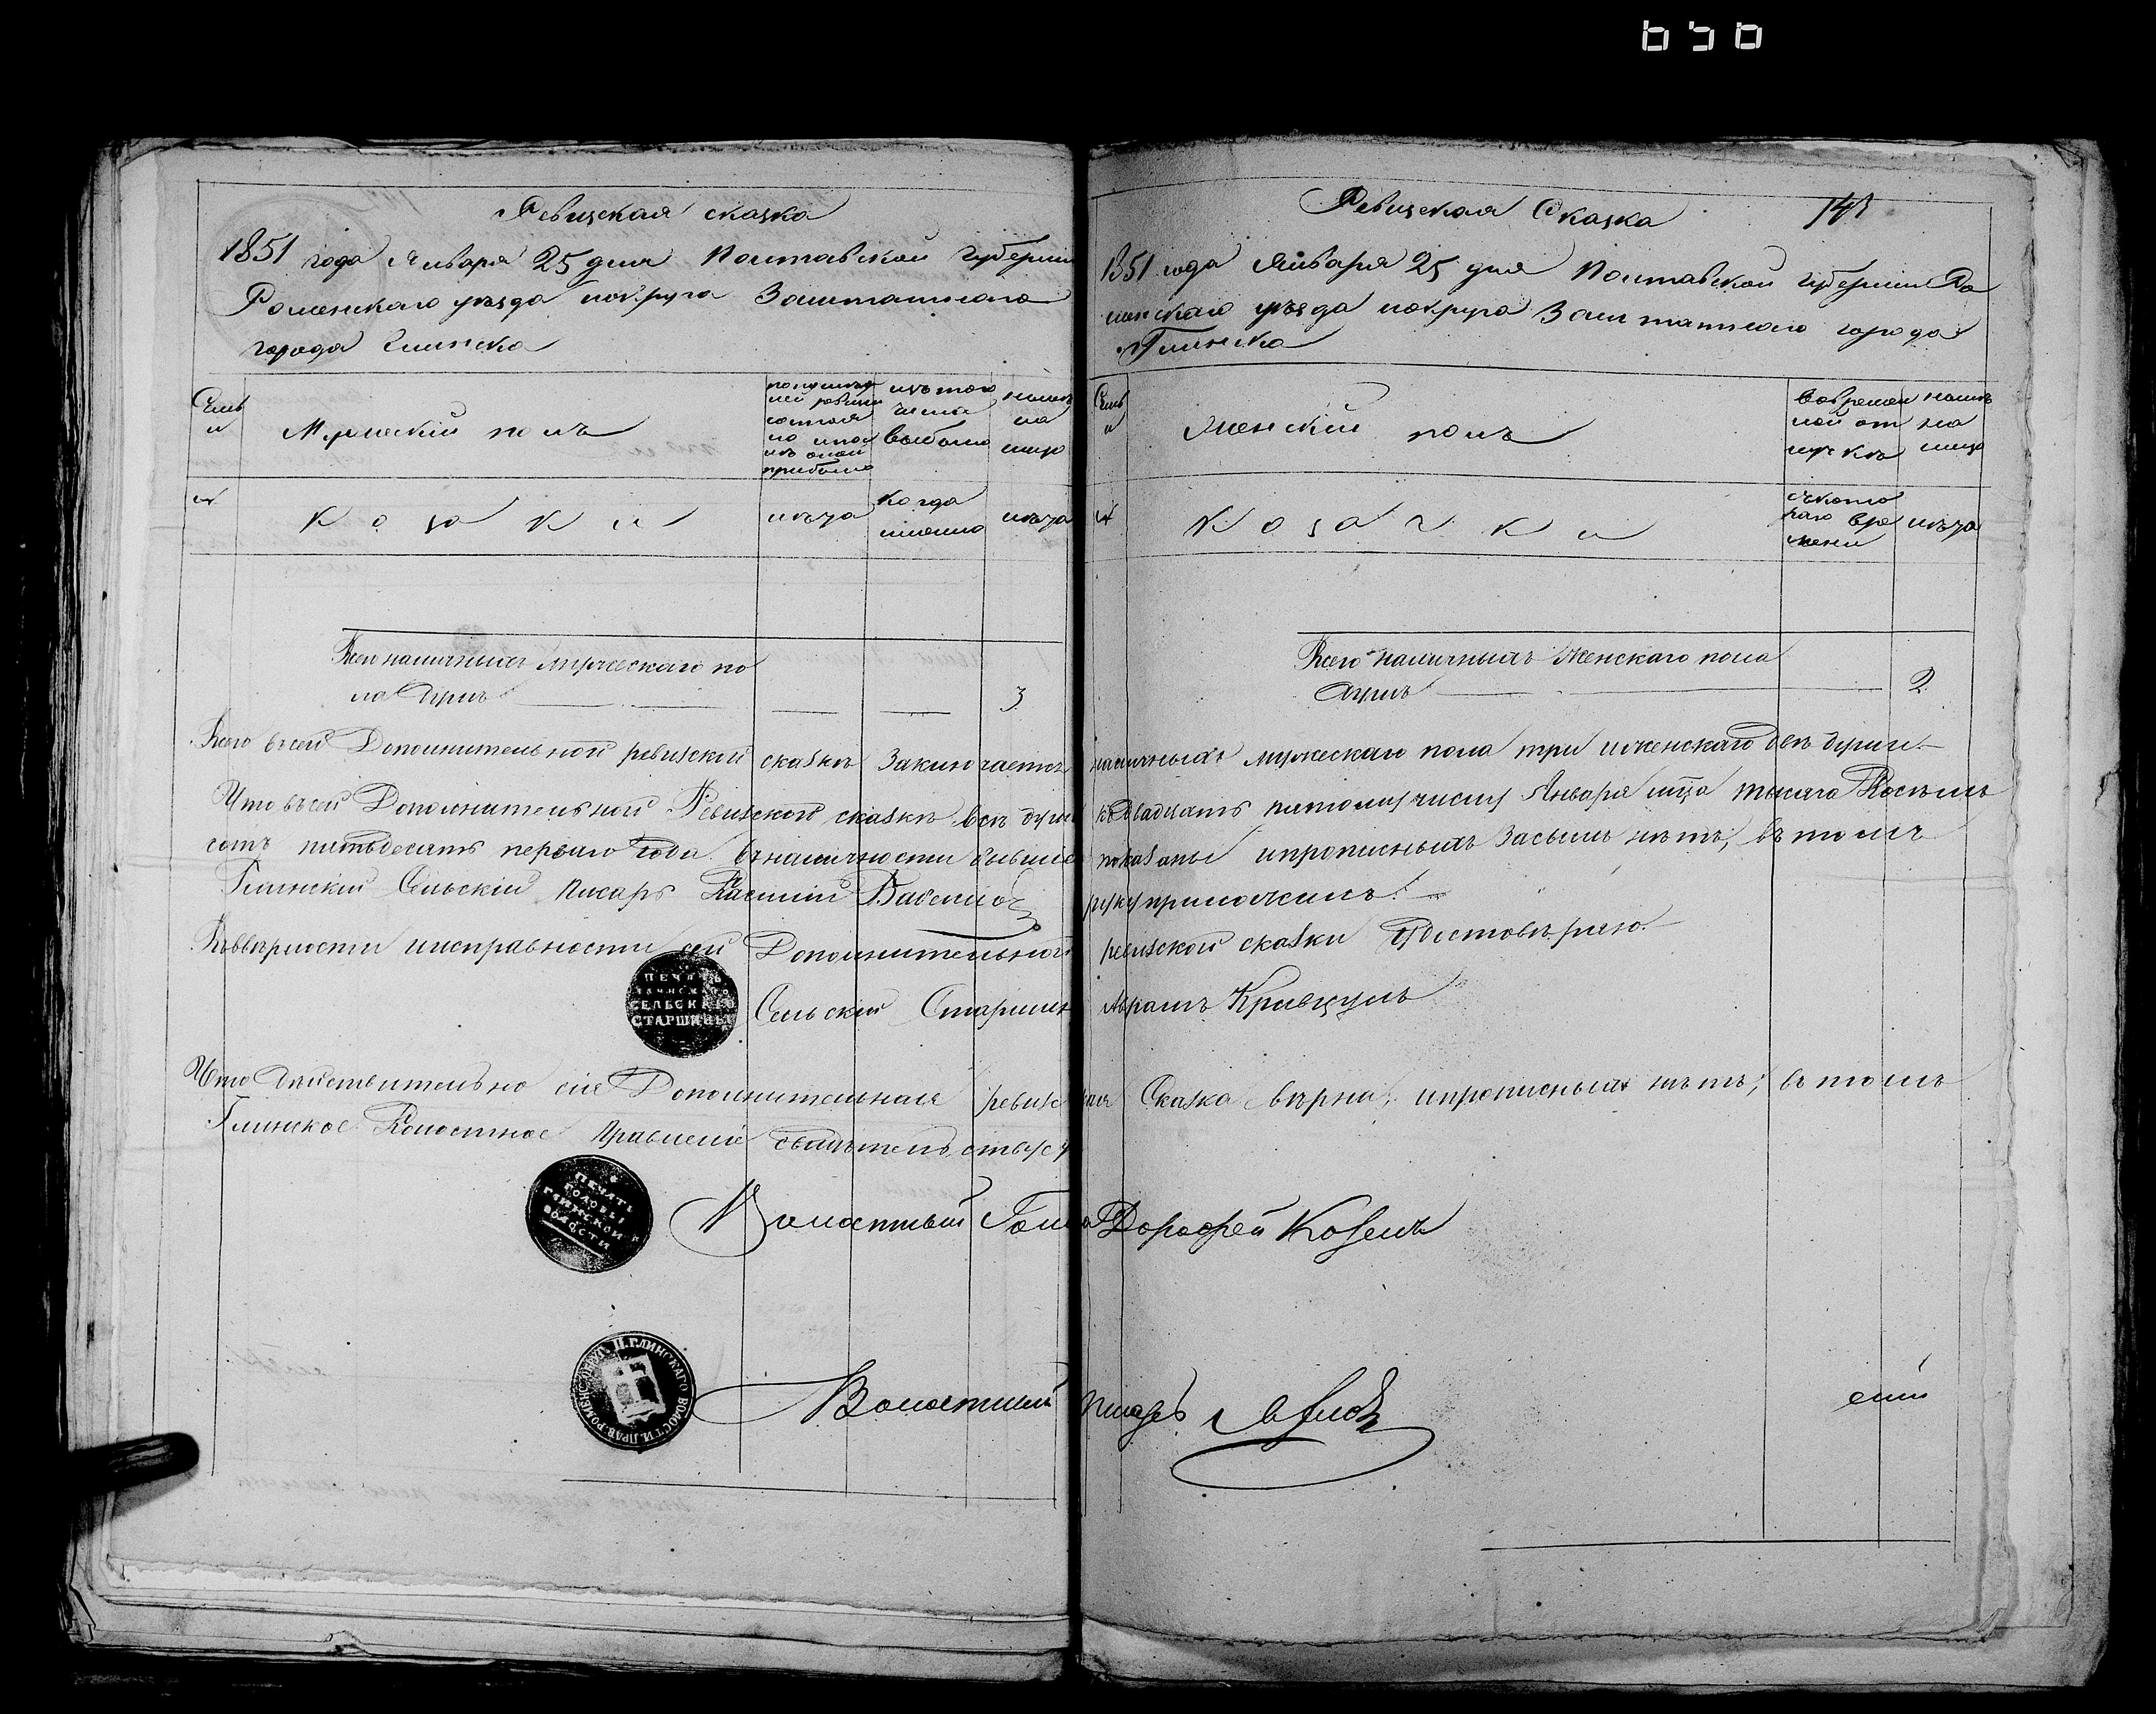 Ревизская сказка
1851 года Января 25 дня Полтавской Губернии
Роменскаго уѣзда иокруга Заштатнаго
города Глинска
Семьи
Мужеский полъ
изъ того числа выбыло
нынѣ на лицо
Козаки
лѣта
когда именно
лѣта
Всего наличныхъ мужескаго по
ла душъ 3
Ревизская Сказка 141
1851 года Января 25 дня Полтавской Губернии Ро
менскаго уѣзда иокруга Заштатнаго города
Глинска
Семьи
Женский полъ
Вовремен
ной от
лучкѣ
нынѣ
на
лицо
Козачки
съкото
раго вре
мени
лѣта
Всего наличныхъ Женскаго пола
душъ 2
Всего всей Дополнительной ревизской сказкѣ Заключается наличныхъ мужескаго пола три иженскаго двѣ души
Что всей Дополнительной Ревизской сказкѣ всѣ души къ двадцать пятому числу Января мца тысяча Восемь
сотъ пятьдесятъ перваго года вналичности бывшие показаны ипрописныхъ Засѣмъ нѣтъ; втомъ
Глинский Сельский Писарь Василий руку приложилъ
Въвѣрности иисправности сей Дополнительной ревизской сказки Удостовѣряю
ПЕЧАТЬ
ГЛИНСКАГО
СЕЛЬСКАГО
СТАРШИНЫ
Сельский Старшина Абрамъ Кривцунъ
Что дѣйствительно сия Дополнительная ревизская Сказка вѣрна, ипрописныхъ нѣтъ; втомъ
Глинское Волостное Правление свидѣтельствуетъ
ПЕЧАТЬ
ГОЛОВЫ
ГЛИНСКОЙ
ВОЛОСТИ
Волостный Голова Дорофей Козелъ
РОМЕНС. ГЛИНСКАГО ВОЛОСТН. ПРАВ.
Волостный писарь